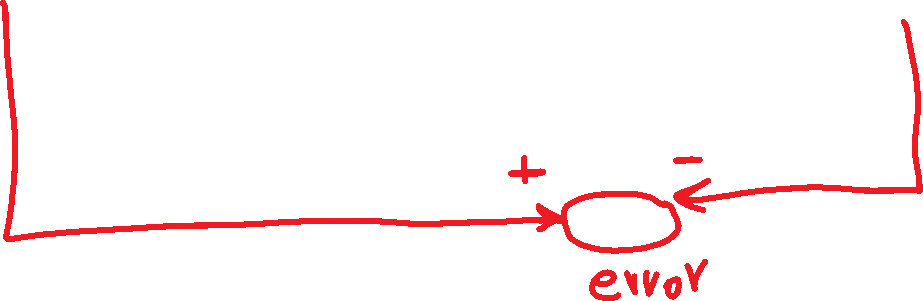 + -
error